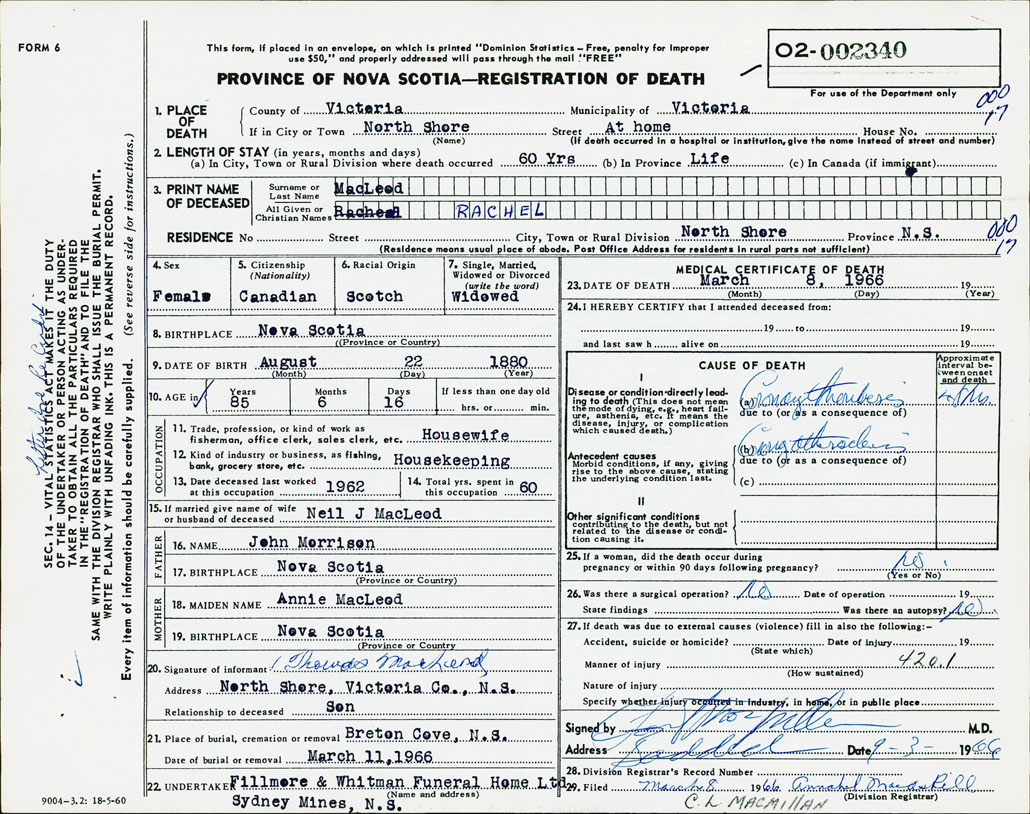 FORM 6
This form, if placed in an envelope, on which is printed "Dominion Statistics – Free, penalty for improper
use $50," and properly addressed will pass through the mail "FREE"
PROVINCE OF NOVA SCOTIA—REGISTRATION OF DEATH
02-002340
For use of the Department only
000
17
1. PLACE OF DEATH County of Victoria Municipality of Victoria
If in City or Town North Shore Street At home House No.
(Name) (If death occurred in a hospital or institution, give the name instead of street and number)
2. LENGTH OF STAY (in years, months and days)
(a) In City, Town or Rural Division where death occurred 60 Yrs (b) In Province Life (c) In Canada (if immigrant)
3. PRINT NAME OF DECEASED Surname or Last Name MacLeod
All Given or Christian Names Racheal RACHEL
RESIDENCE No Street City, Town or Rural Division North Shore Province N.S.
000
17
(Residence means usual place of abode. Post Office Address for residents in rural parts not sufficient)
4. Sex
Female
5. Citizenship
(Nationality)
Canadian
6. Racial Origin
Scotch
7. Single, Married,
Widowed or Divorced
(write the word)
Widowed
8. BIRTHPLACE Nova Scotia
((Province or Country)
9. DATE OF BIRTH August 22 1880
(Month) (Day) (Year)
10. AGE in Years Months Days If less than one day old
85 6 16 hrs. or min.
OCCUPATION
11. Trade, profession, or kind of work as
fisherman, office clerk, sales clerk, etc. Housewife
12. Kind of industry or business, as fishing,
bank, grocery store, etc. Housekeeping
13. Date deceased last worked
at this occupation 1962
14. Total yrs. spent in
this occupation 60
15. If married give name of wife
or husband of deceased Neil J MacLeod
FATHER
16. NAME John Morrison
17. BIRTHPLACE Nova Scotia
(Province or Country)
MOTHER
18. MAIDEN NAME Annie MacLeod
19. BIRTHPLACE Nova Scotia
(Province or Country)
20. Signature of informant Thomas MacLeod
Address North Shore, Victoria Co., N.S.
Relationship to deceased Son
21. Place of burial, cremation or removal Breton Cove, N.S.
Date of burial or removal March 11,1966
22. UNDERTAKER Fillmore & Whitman Funeral Home Ltd
(Name and address)
Sydney Mines, N.S.
MEDICAL CERTIFICATE OF DEATH
23. DATE OF DEATH March 8, 1966 19
(Month) (Day) (Year)
24. I HEREBY CERTIFY that I attended deceased from:
19 to 19
and last saw h alive on 19
CAUSE OF DEATH
Approximate
interval be-
tween onset
and death
I
Disease or condition directly lead-
ing to death (This does not mean
the mode of dying, e.g., heart fail-
ure, asthenia, etc. It means the
disease, injury, or complication
which caused death.)
(a) Coronary thrombosis
due to (or as a consequence of)
Antecedent causes
Morbid conditions, if any, giving
rise to the above cause, stating
the underlying condition last.
(b)
due to (or as a consequence of)
(c)
II
Other significant conditions
contributing to the death, but not
related to the disease or condi-
tion causing it.
25. If a woman, did the death occur during
pregnancy or within 90 days following pregnancy? no
(Yes or No)
26. Was there a surgical operation? no Date of operation 19
State findings Was there an autopsy? no
27. If death was due to external causes (violence) fill in also the following:-
Accident, suicide or homicide? Date of injury 19
(State which)
Manner of injury 420.1
(How sustained)
Nature of injury
Specify whether injury occurred in industry, in home, or in public place
Signed by M.D.
Address Baddeck Date 9-3- 1966
28. Division Registrar's Record Number
29. Filed March 8 1966 Annabel MacAskill
(Division Registrar)
C. L MACMILLAN
9004-3.2: 18-5-60
SEC. 14 – VITAL STATISTICS ACT MAKES IT THE DUTY
OF THE UNDERTAKER OR PERSON ACTING AS UNDER-
TAKER TO OBTAIN ALL THE PARTICULARS REQUIRED
IN THE "REGISTRATION OF DEATH" AND TO FILE THE
SAME WITH THE DIVISION REGISTRAR WHO SHALL ISSUE THE BURIAL PERMIT.
WRITE PLAINLY WITH UNFADING INK. THIS IS A PERMANENT RECORD.
Every item of information should be carefully supplied. (See reverse side for instructions.)